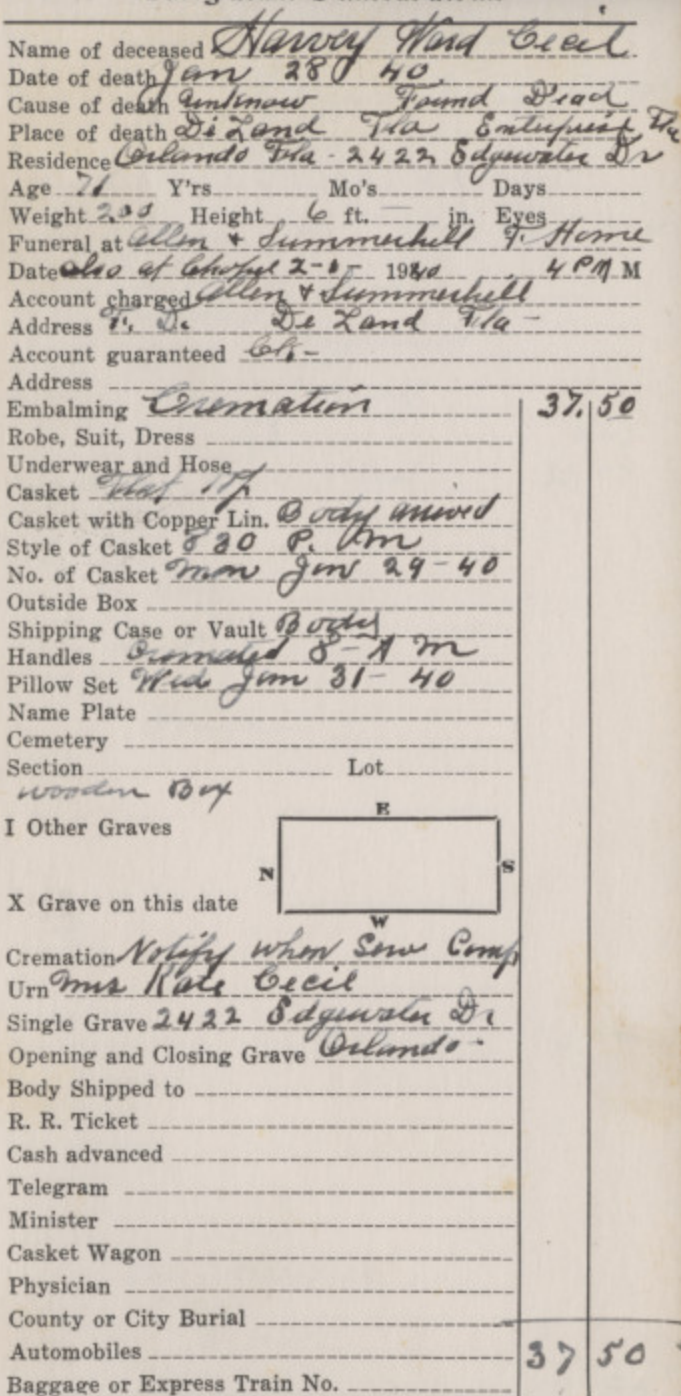 Name of deceased Harvey Ward Cecil
Date of death Jan 28 40
Cause of death unknow Found Dead
Place of death DeLand Fla Enterprise Fla
Residence Orlando Fla - 2422 Edgewater Dr
Age 71 Y'rs Mo's Days
Weight 200 Height 6 ft. - in. Eyes
Funeral at Allen & Summerhill F. Home
Date also at Chapel 2-1- 1940 4 PM M
Account charged Allen & Summerhill
Address F. D. De Land Fla -
Account guaranteed Ch -
Address
Embalming Cremation 37.50
Robe, Suit, Dress
Underwear and Hose
Casket Flat Top
Casket with Copper Lin. Body arrived
Style of Casket 8 30 P. m
No. of Casket Mon Jan 29 - 40
Outside Box
Shipping Case or Vault Body
Handles Cremated 8 - A m
Pillow Set Wed Jan 31 - 40
Name Plate
Cemetery
Section Lot
wooden Box
E
I Other Graves
N S
X Grave on this date
W
Cremation Notify when Serv Comp
Urn Mrs Kate Cecil
Single Grave 2422 Edgewater Dr
Opening and Closing Grave Orlando -
Body Shipped to
R. R. Ticket
Cash advanced
Telegram
Minister
Casket Wagon
Physician
County or City Burial
Automobiles 37 50
Baggage or Express Train No.